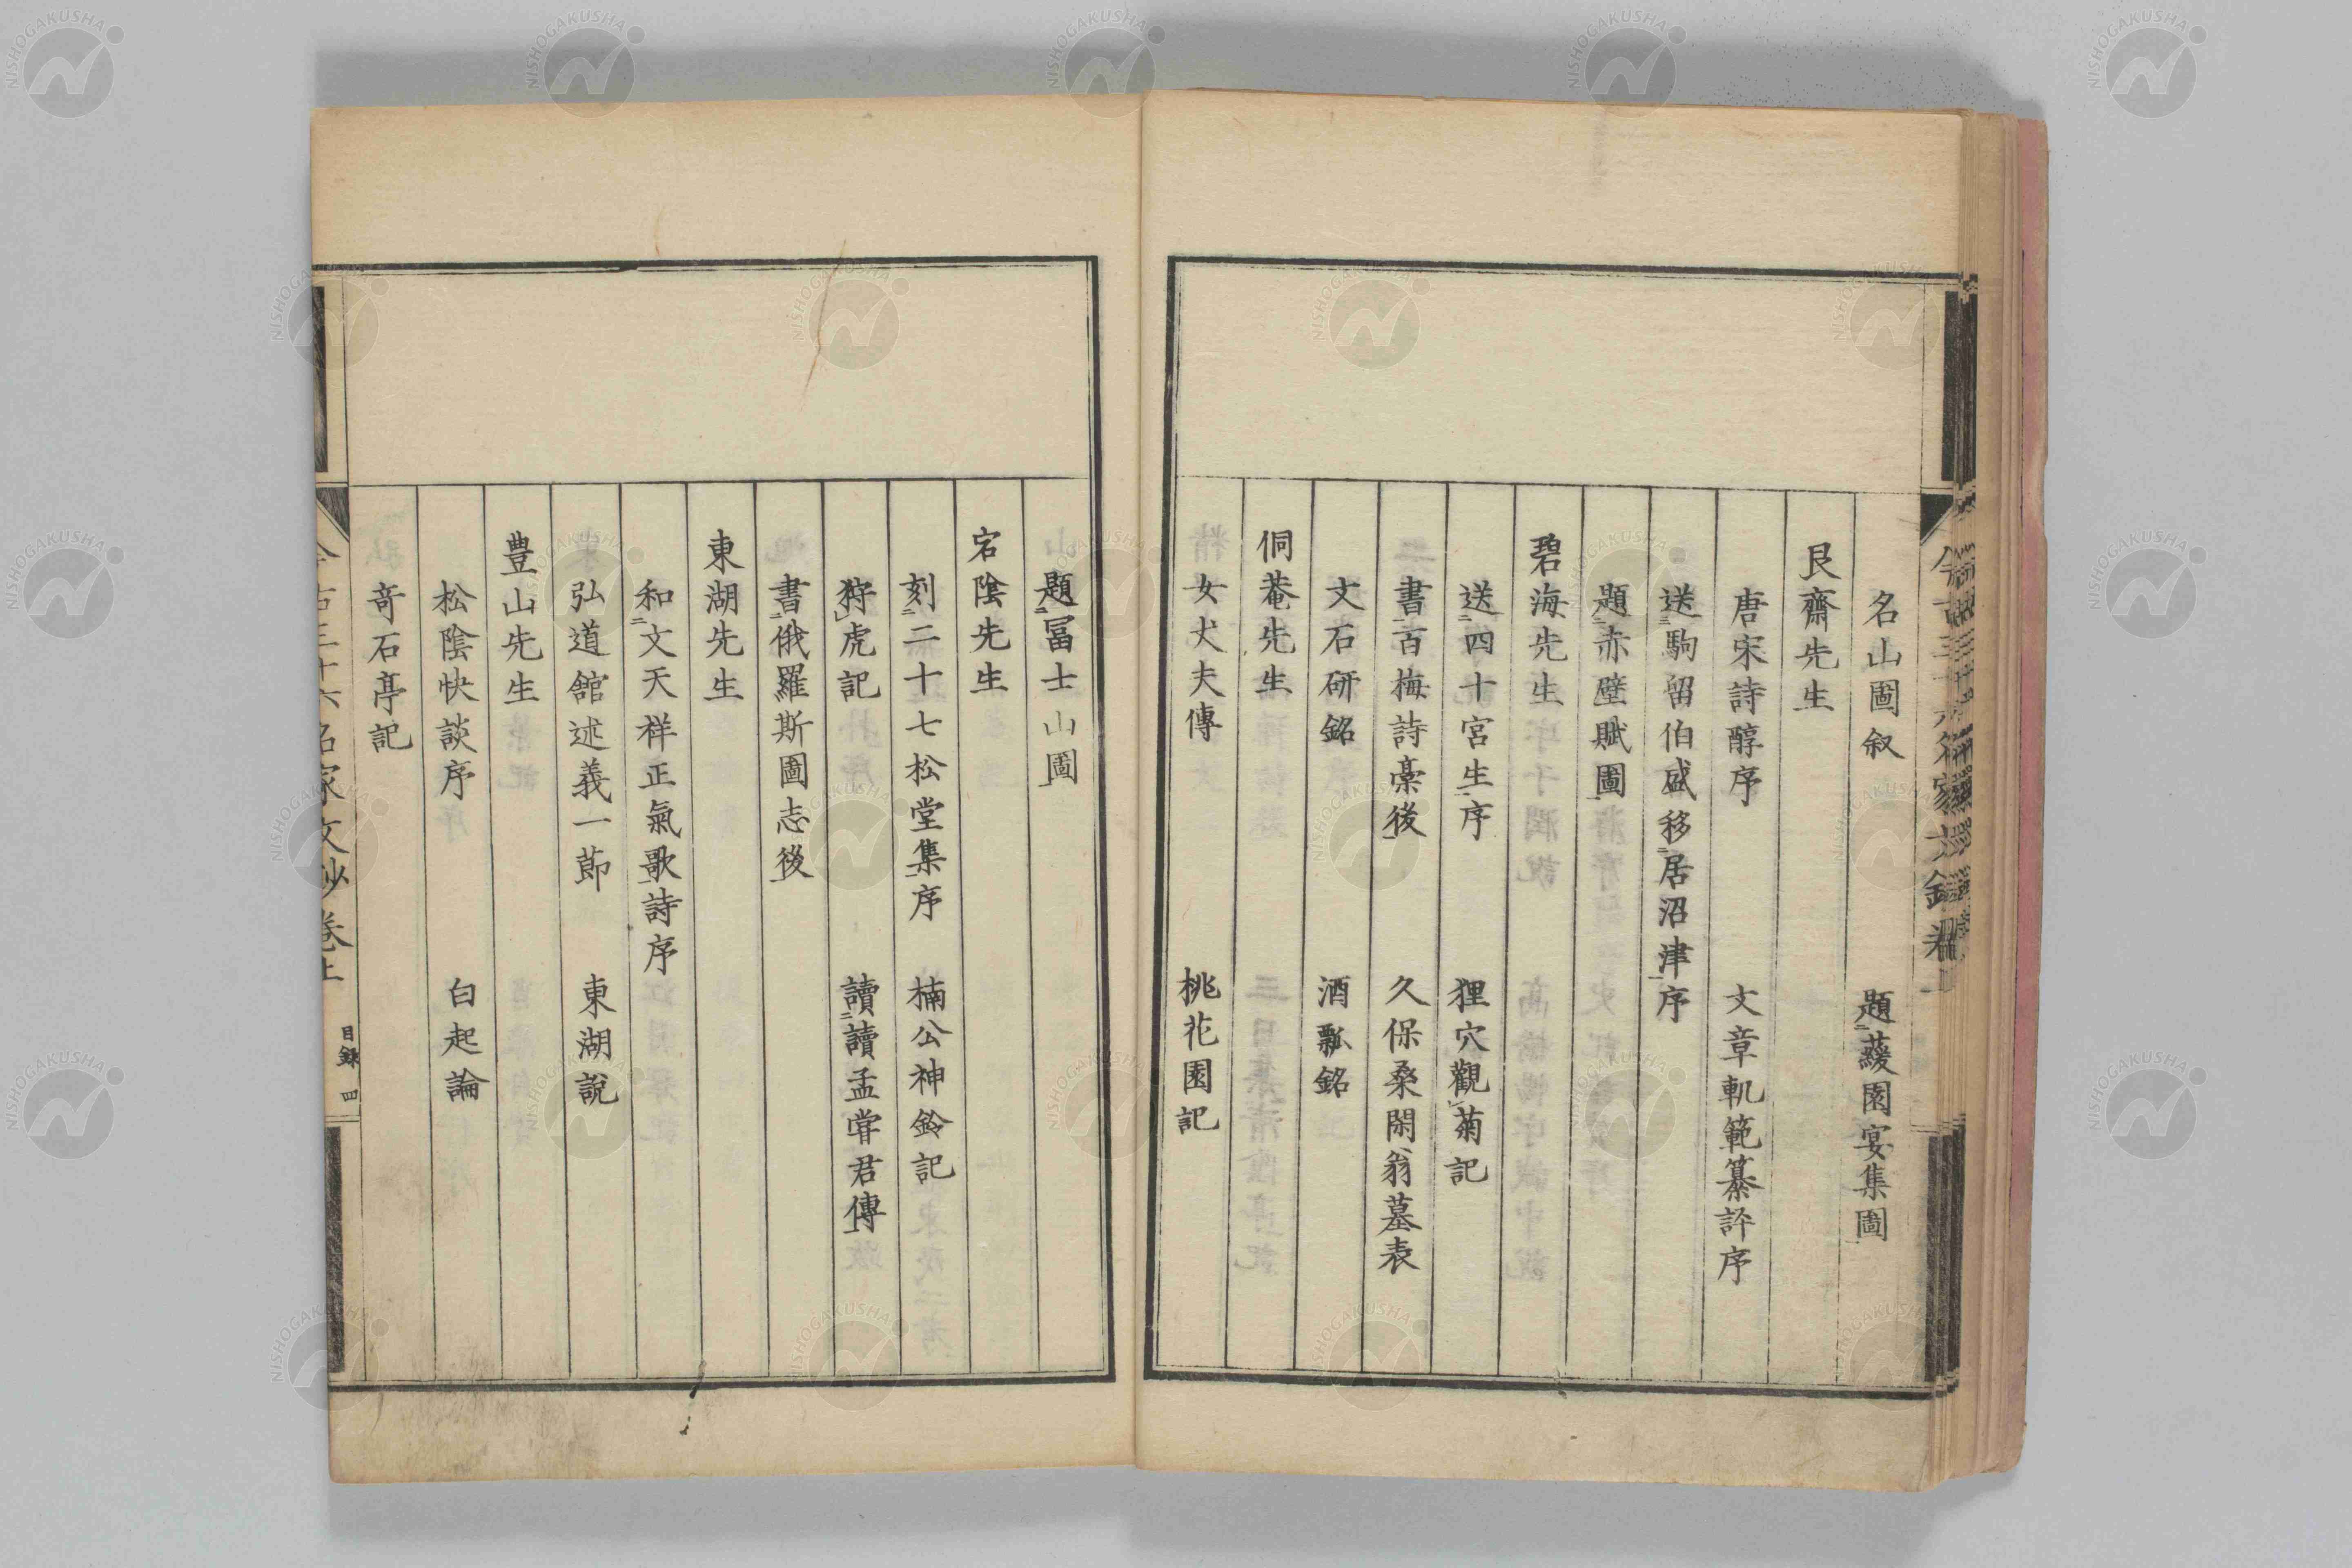 名山圖叙　題蘐園宴集圖
艮齋先生
唐宋詩醇序　文章軌範纂評序
送駒留伯盛移居沼津序
題赤壁賦圖
碧海先生
送四十宮生序　狸穴觀菊記
書百梅詩稾後　久保桑閑翁墓表
文石研銘　酒瓢銘
侗菴先生
女丈夫傳　桃花園記
題冨士山圖
宕陰先生
刻二十七松堂集序　楠公神鈴記
狩虎記　讀讀孟甞君傳
書俄羅斯圖志後
東湖先生
和文天祥正氣歌詩序
弘道館述義一節　東湖説
豊山先生
松陰快談序　白起論
奇石亭記
今古三十六名家文鈔卷上　目錄　四
NISHOGAKUSHA